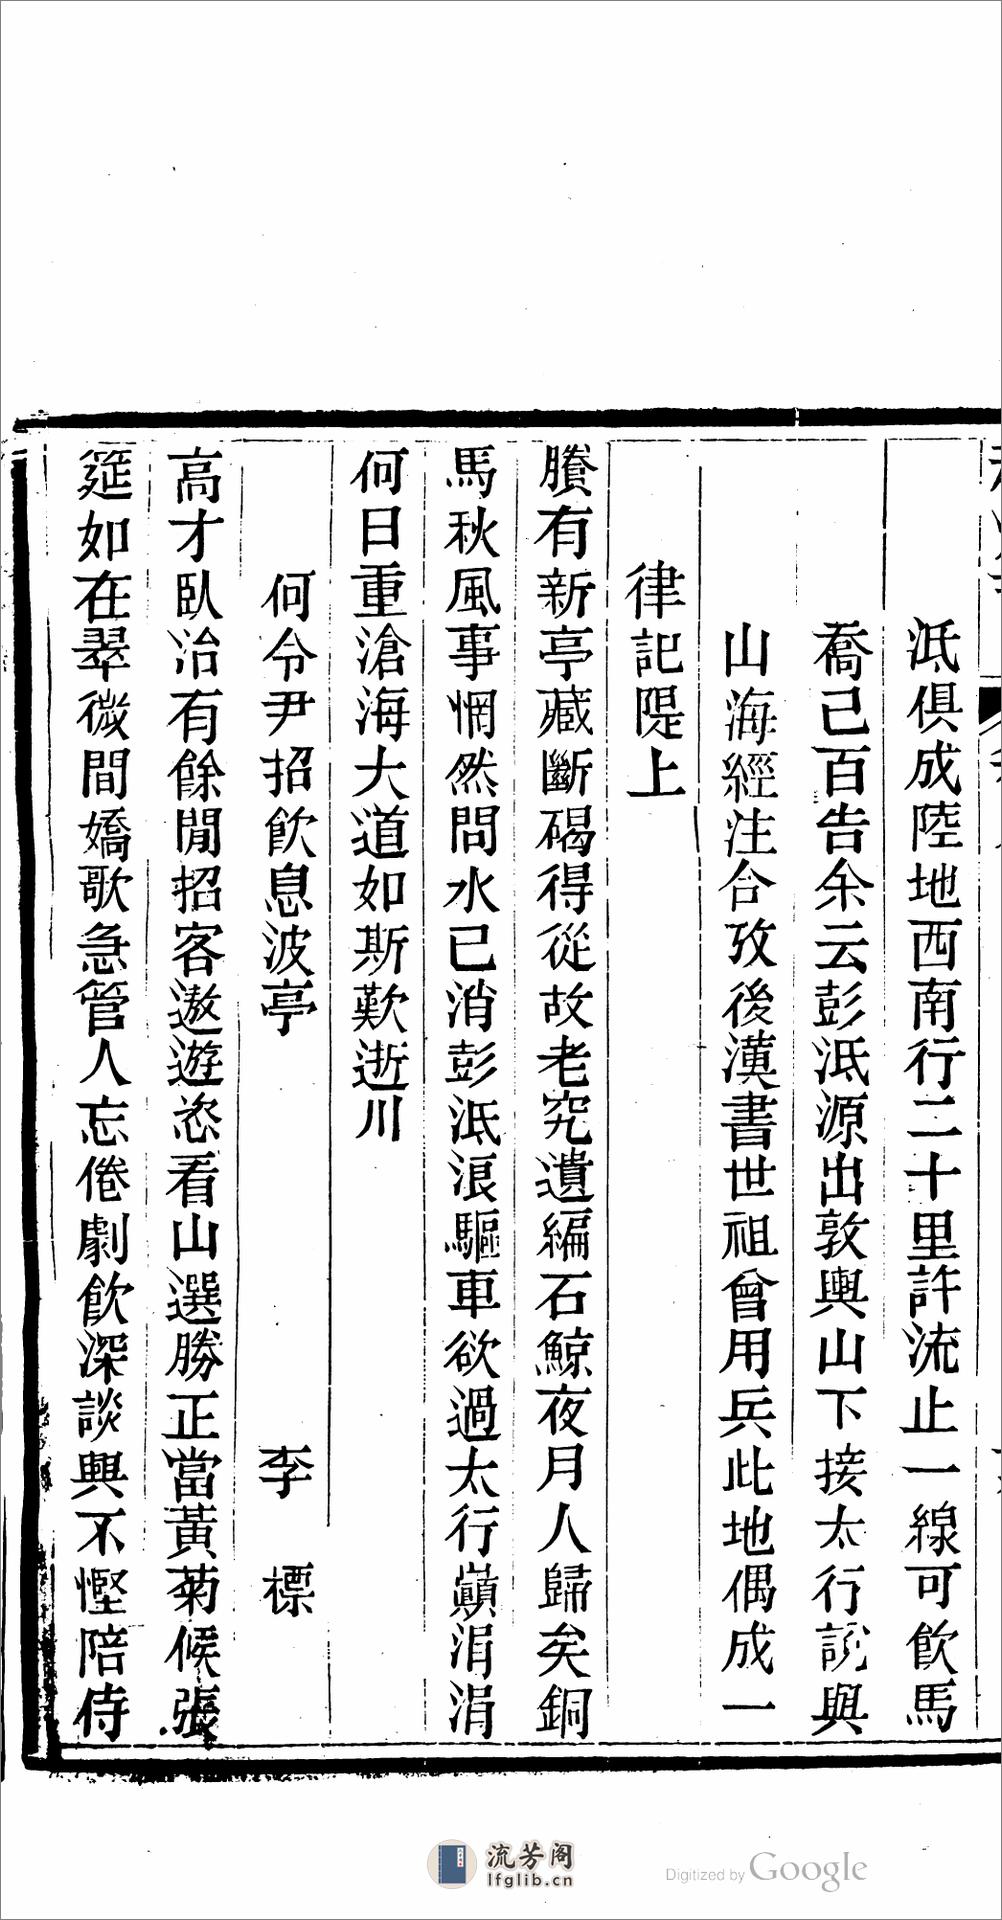 泜俱成陸地西南行二十里許流止一線可飲馬
喬己百告余云彭泜源出敦輿山下接太行說與
山海經注合攷後漢書世祖曾用兵此地偶成一
律記隄上
賸有新亭藏斷碣得從故老究遺編石鯨夜月人歸矣銅
馬秋風事惘然問水已消彭泜浪驅車欲過太行巔涓涓
何日重滄海大道如斯歎逝川
何令尹招飲息波亭 李標
高才臥治有餘閒招客遨遊恣看山選勝正當黃菊候張
筵如在翠微間嬌歌急管人忘倦劇飲深談興不慳陪侍
流芳阁
lfglib.cn
Digitized by Google